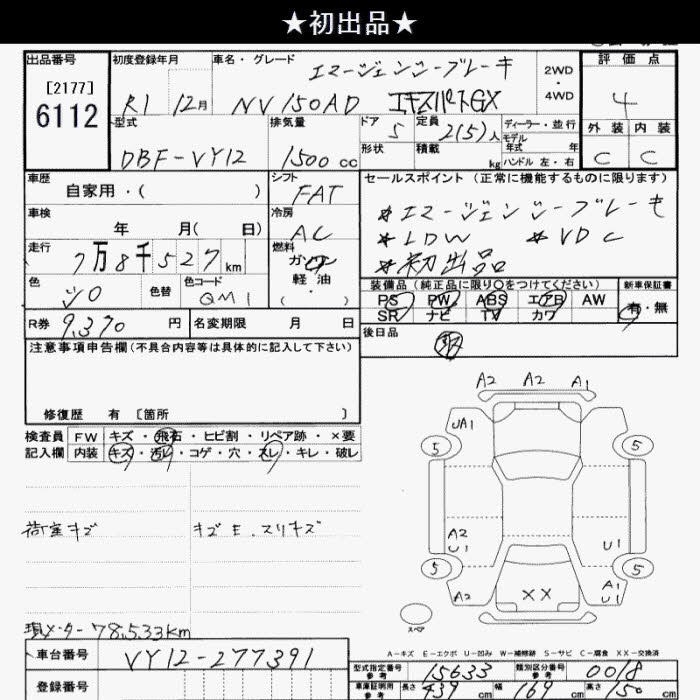 ★初出品★
出品番号 初度登録年月 車名・グレード エマージェンシーブレーキ 2WD ・ 4WD 評価点
[2177] 6112 R1 12月 NV150AD エキスパートGX 4
型式 排気量 ドア 5 定員 2(5)人 ディーラー・並行 外装 内装
モデル年式 年
DBF-VY12 1500cc 形状 積載 kg ハンドル 左・右 C C
車歴 自家用・( ) シフト FAT セールスポイント (正常に機能するものに限ります)
車検 年 月( 日) 冷房 AC *エマージェンシーブレーキ
走行 7万8千527km 燃料 ガソリン ・ 軽油 ・ *LDW *VDC
*初出品
色 シロ 色替 色コード QM1 装備品 (純正品に限り○をつけてください) 新車保証書
PS PW ABS エアB AW 有・無
R券 9,370 円 名変期限 月 日 SR ナビ TV カワ
注意事項申告欄(不具合内容等は具体的に記入して下さい) 後日品
修復歴 有 [箇所 ]
A2 A2 A1
検査員 FW キズ・飛石・ヒビ割・リペア跡・×要
記入欄 内装 キズ・汚レ・コゲ・穴・スレ・キレ・破レ
UA1
5 5
荷室キズ キズE.スリキズ
A2 U1 U1
5 5
A2 XX A1 U1
スペア
現メーター 78,533km
A-キズ E-エクボ U-凹み W-補修跡 S-サビ C-腐食 XX-交換済
車台番号 VY12-277391 型式指定番号 参考 15633 類別区分番号 参考 0018
登録番号 車庫証明用 参考 長さ 439 cm 幅 169 cm 高さ 150 cm